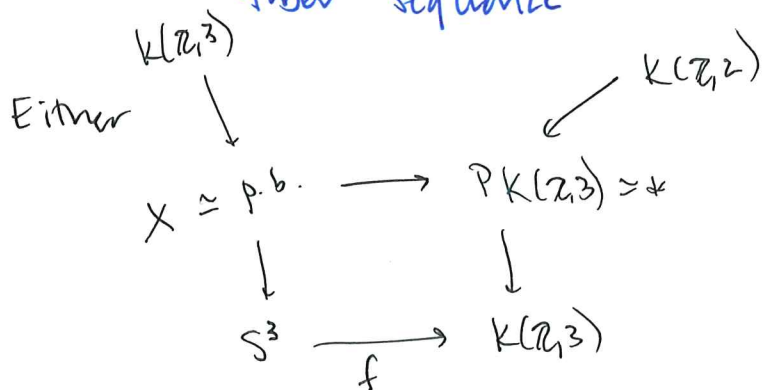 fiber sequence
K(ℤ,3)
K(ℤ,2)
Either
X ≃ p.b. → PK(ℤ,3) ≃ *
S³ → K(ℤ,3)
f